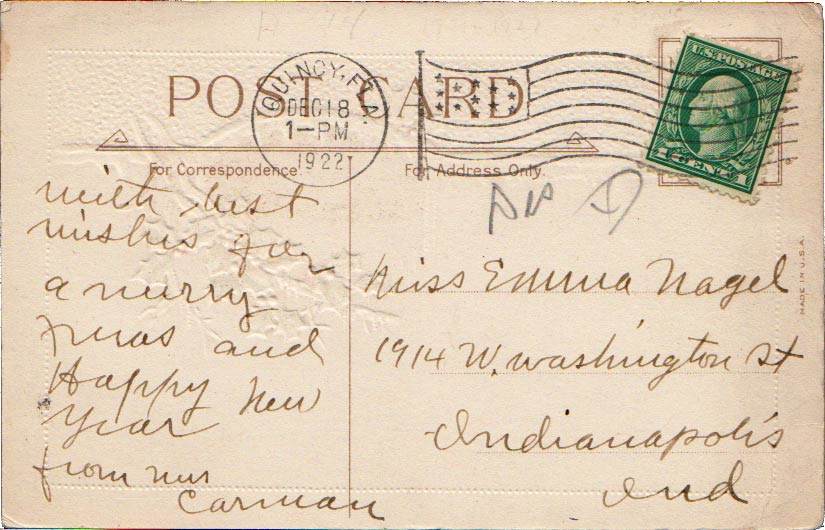 POST CARD
QUINCY, FLA.
DEC 18
1-PM
1922
U.S. POSTAGE
1 CENT 1
For Correspondence.
For Address Only.
with best
wishes for
a merry
xmas and
Happy New
Year
from mrs
Carman
Miss Emma Nagel
1914 W. Washington St
Indianapolis
Ind
MADE IN U.S.A.